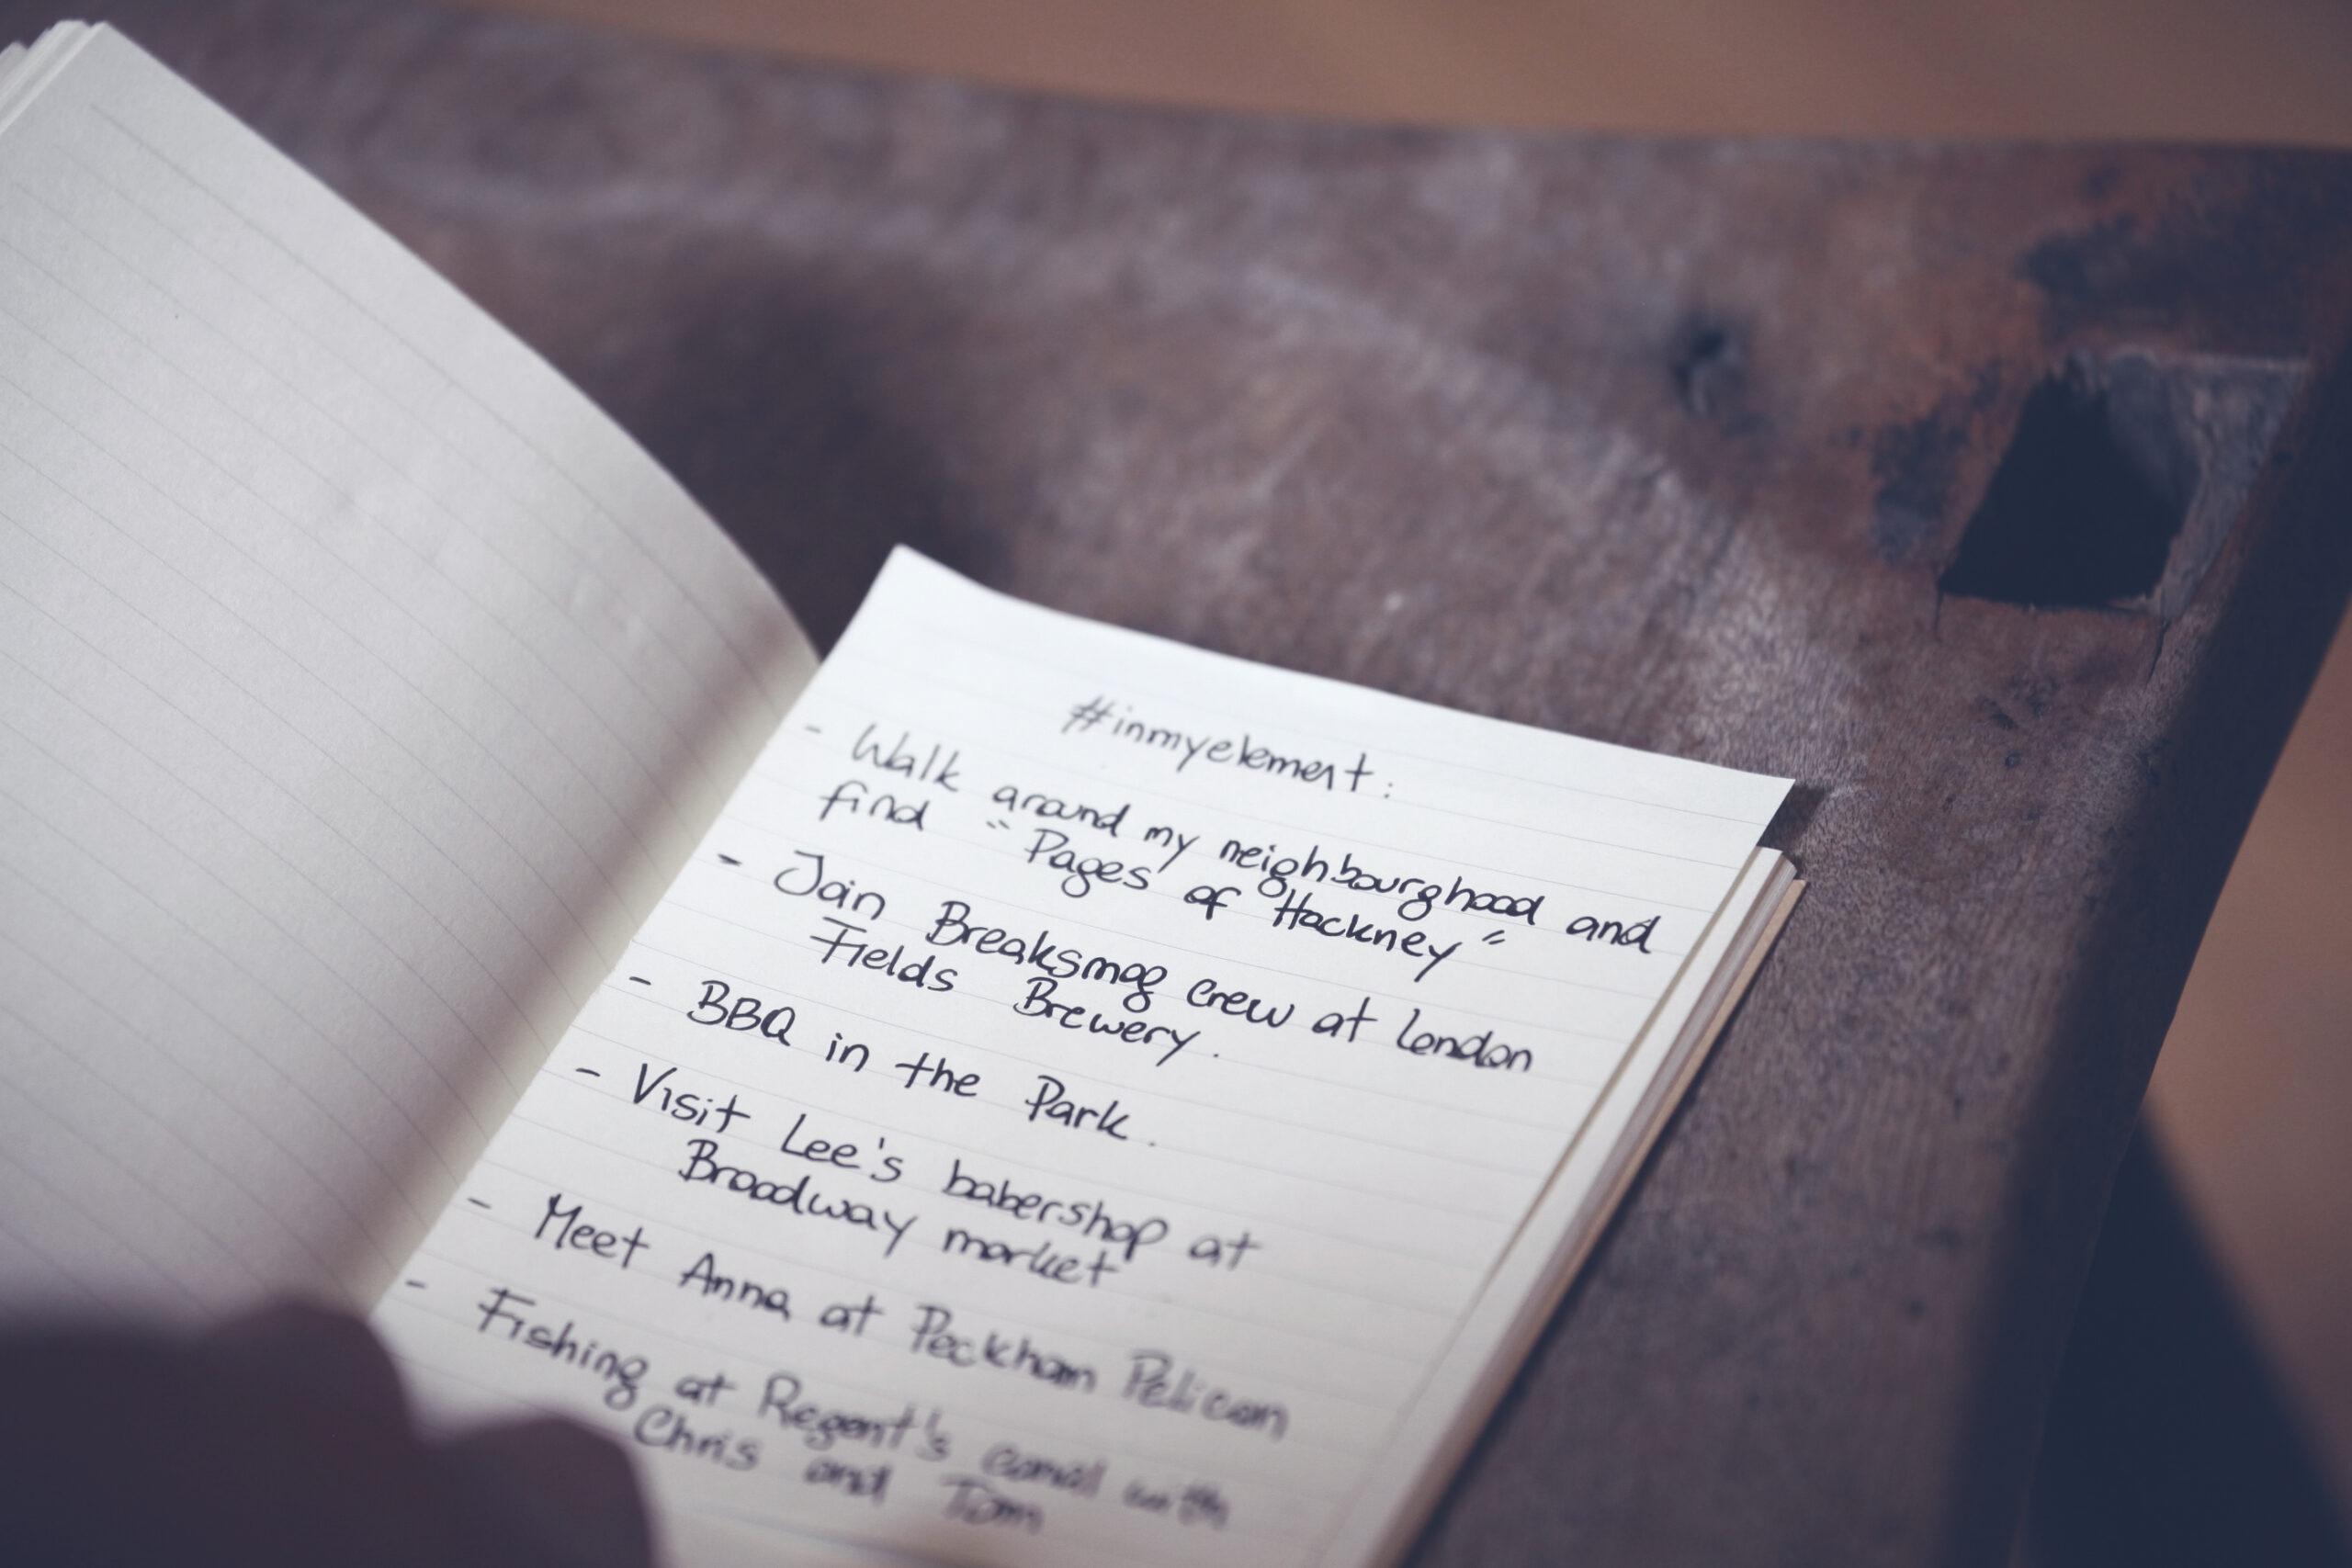 #inmyelement:
- Walk around my neighbourghood and
find "Pages of Hackney"
- Join Breaksmog crew at London
Fields Brewery.
- BBQ in the Park.
- Visit Lee's babershop at
Broadway market
- Meet Anna at Peckham Pelican
- Fishing at Regent's canal with
Chris and Tom